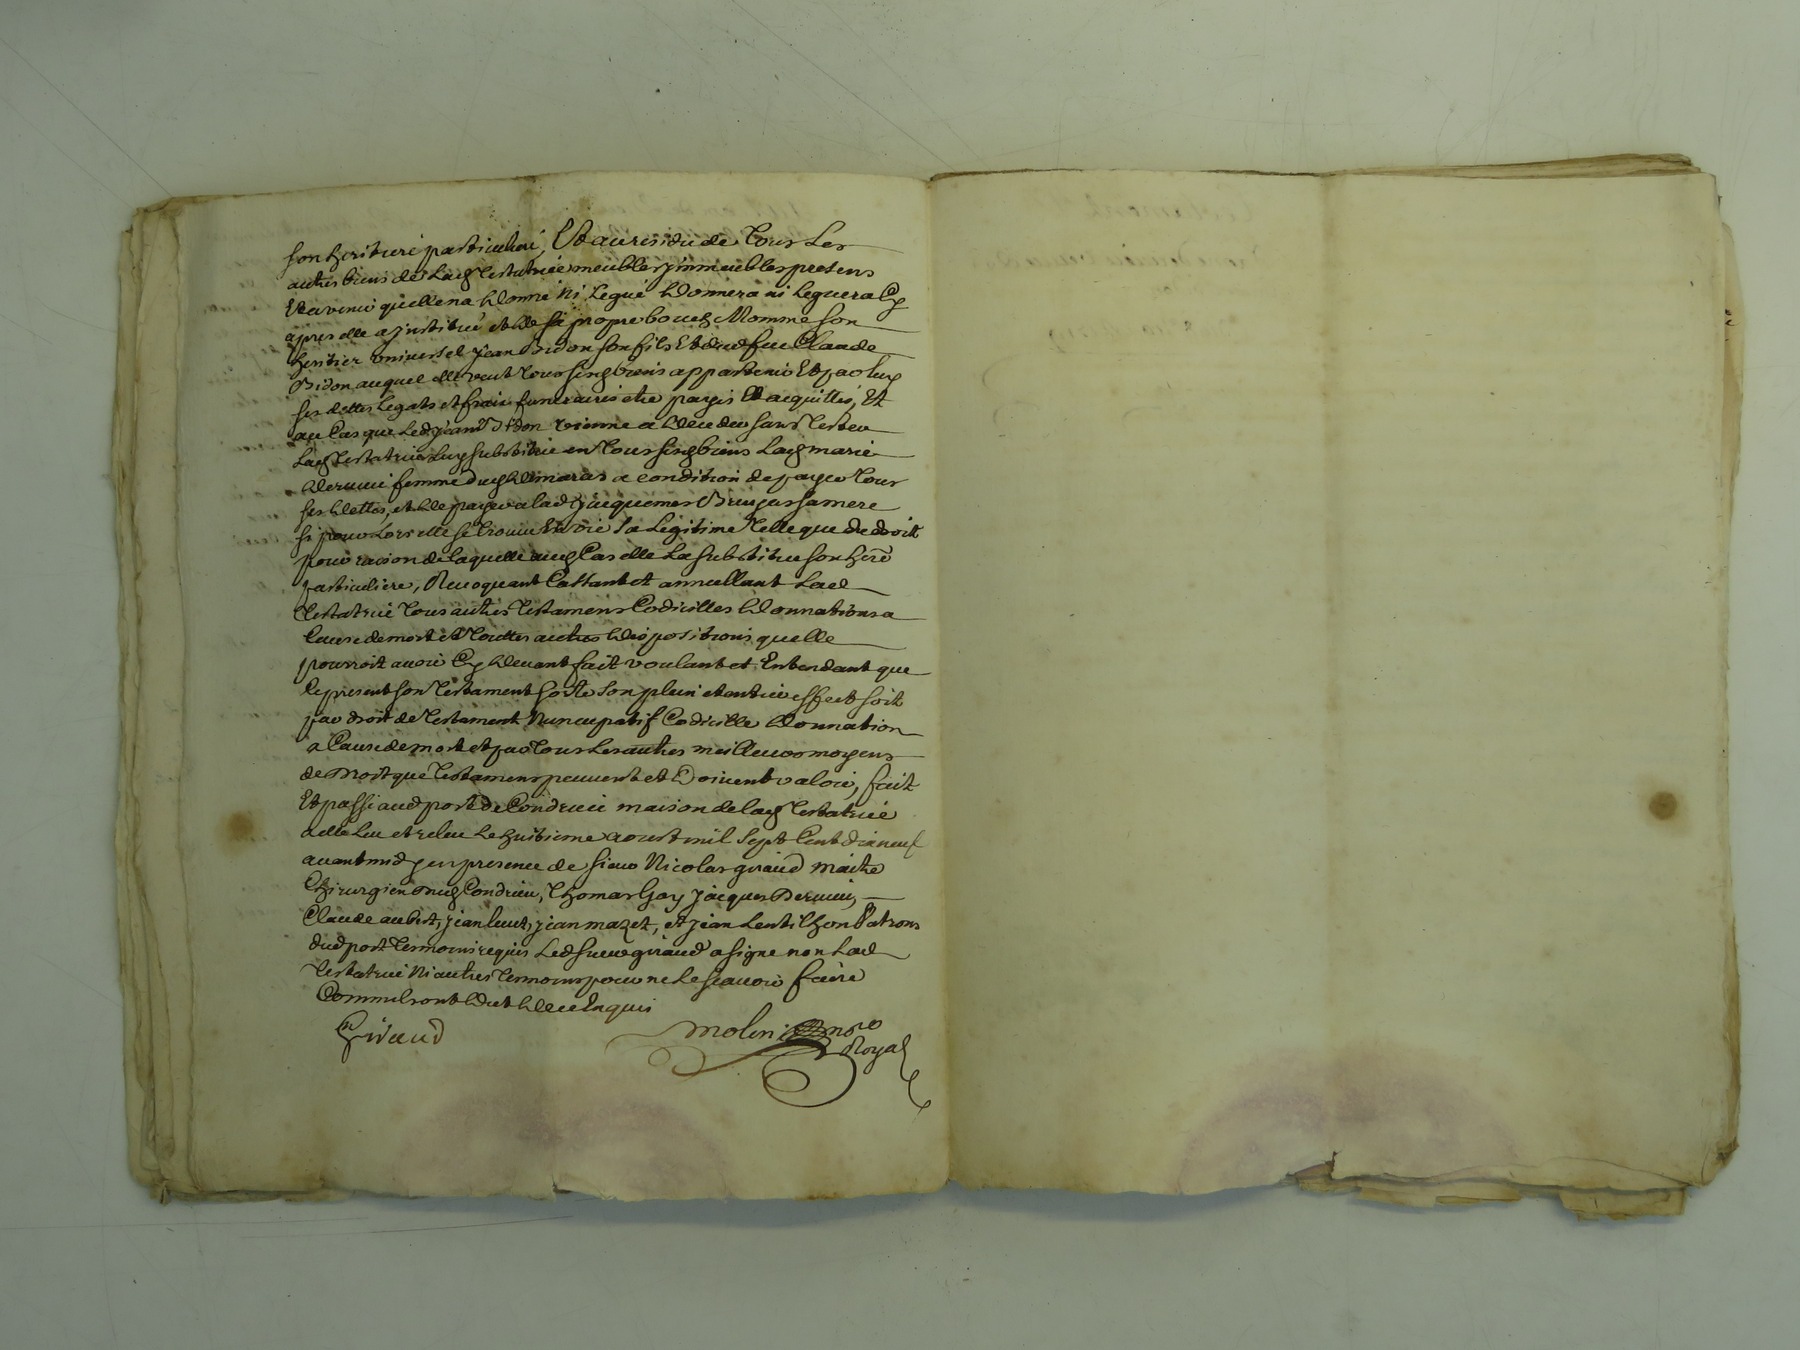 son heritiere particuliere, Et au residu de tous les
autres biens de lad testatrice meubles immeubles presens
Et avenir quelle na donné ni legué donnera ni leguera cy
apres elle a institué et de sa propre bouche Nomme son
heritier universel jean Bidon son fils Et dud feu Claude
Bidon auquel elle veut tous sesd biens appartenir Et par luy
ses dettes legats et frais funeraires etre payés Et acquittés, Et
au Cas que led jean Bidon vienne a deceder sans tester
lad testatrice luy substitue en tous sesd biens lad marie
femme dud a condition de payer tous
ses dettes, et de payer a lad sa mere
si pour lors elle se trouve En vie sa legitime telle que de droit
pour raison de laquelle aud Cas elle la substitue son here
particuliere, Revoquant Cassant et annullant lad
testatrice tous autres testamens Codicilles donnations a
Cause de mort et touttes autres dispositions quelle
pourroit avoir Cy devant fait voulant et Entendant que
le present son testament sorte son plein et entier effect soit
par droit de testament Nuncupatif Codicille donnation
a Cause de mort et par tous les autres meilleurs moyens
de droit que testamens peuvent et doivent valoir, fait
Et passé aud port de Condrieu maison de lad testatrice
a elle lu et relu le huitieme aoust mil sept Cent dix neuf
avant midy en presence de sieur Nicolas giraud maitre
Chirurgien dud Condrieu, thomas Gay jacques Dervieu,
Claude aubert, jean luut, jean mazet, et jean Lentilhon Patrons
dud port temoins requis led sieur giraud a signé non lad
testatrice Ni autres temoins pour ne le scavoir faire
Comm ils ont dit de ce Enquis
Giraud
molin no.re
Royal